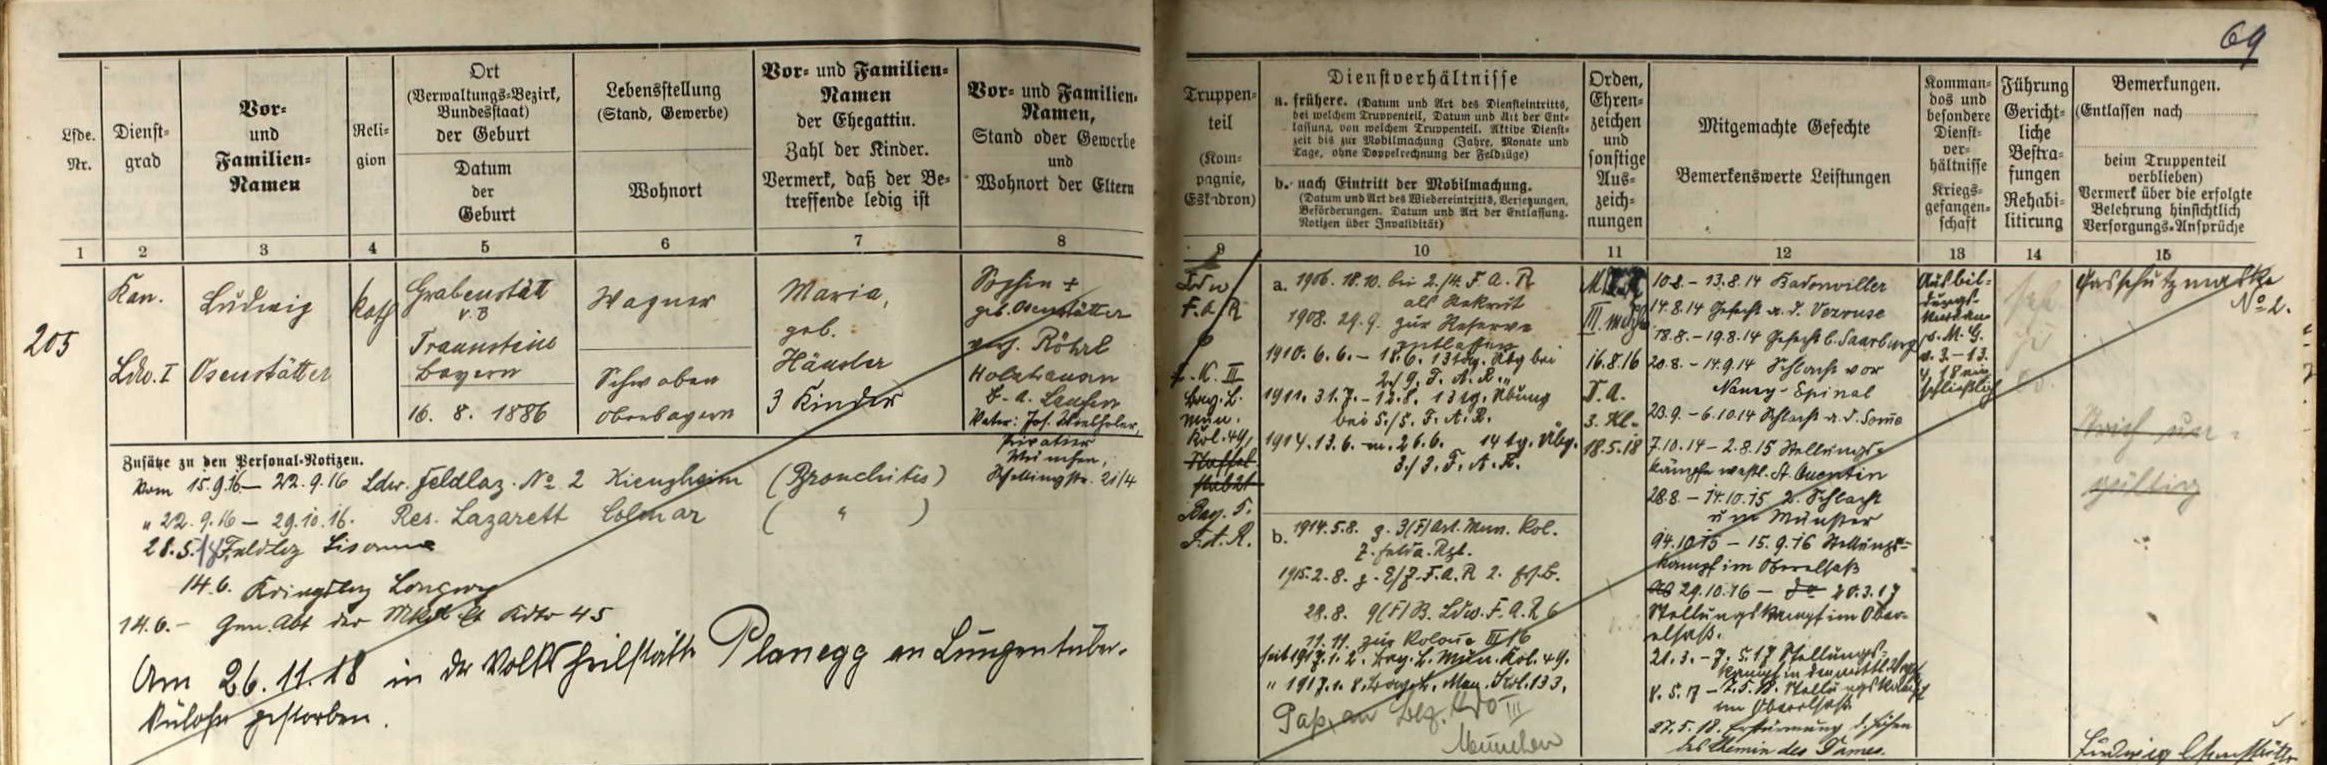 69
Lfde.
Nr.
Dienst-
grad
Vor-
und
Familien-
Namen
Reli-
gion
Ort
(Verwaltungs-Bezirk,
Bundesstaat)
der Geburt
Datum
der
Geburt
Lebensstellung
(Stand, Gewerbe)
Wohnort
Vor- und Familien-
Namen
der Ehegattin.
Zahl der Kinder.
Vermerk, daß der Be-
treffende ledig ist
Vor- und Familien-
Namen,
Stand oder Gewerbe
und
Wohnort der Eltern
1 2 3 4 5 6 7 8
205
Kan.
Ldw. I
Ludwig
Osenstätter
kath
Grabenstätt
v. B
Traunstein
Bayern
16. 8. 1886
Wagner
Schwaben
Oberbayern
Maria,
geb.
Häusler
3 Kinder
Sophie +
geb. Osenstätter
Röhrl
Holzhausen
B. A. Laufen
Vater: Jos.
Privatier
München,
Schellingstr. 21/4
Zusätze zu den Personal-Notizen.
Vom 15.9.16 – 22.9.16 Ldw. Feldlaz. No 2 Kienzheim (Bronchitis)
" 22.9.16 – 29.10.16. Res. Lazarett Colmar ( " )
28.5.18 Feldlaz
14.6. Kriegslaz Longwy
14.6. – Gen. Abt der 45
Am 26.11.18 in der Volksheilstätte Planegg an Lungentuber-
kulose gestorben.
Truppen-
teil
(Kom-
pagnie,
Eskadron)
Dienstverhältnisse
a. frühere. (Datum und Art des Diensteintritts,
bei welchem Truppenteil, Datum und Art der Ent-
lassung, von welchem Truppenteil. Aktive Dienst-
zeit bis zur Mobilmachung (Jahre, Monate und
Tage, ohne Doppelrechnung der Feldzüge)
b. nach Eintritt der Mobilmachung.
(Datum und Art des Wiedereintritts, Versetzungen,
Beförderungen. Datum und Art der Entlassung.
Notizen über Invalidität)
Orden,
Ehren-
zeichen
und
sonstige
Aus-
zeich-
nungen
Mitgemachte Gefechte
Bemerkenswerte Leistungen
Komman-
dos und
besondere
Dienst-
ver-
hältnisse
Kriegs-
gefangen-
schaft
Führung
Gericht-
liche
Bestra-
fungen
Rehabi-
litirung
Bemerkungen.
(Entlassen nach
beim Truppenteil
verblieben)
Vermerk über die erfolgte
Belehrung hinsichtlich
Versorgungs-Ansprüche
9 10 11 12 13 14 15
Ldw
F. a. R
6
L. K. III
bay. L.
Mun.
Kol. 49,
Staffel
Bay. 5.
F. A. R.
a. 1906. 18.10. bei 2./4. F. A. R
als Rekrut
1908. 29.9. zur Reserve
entlassen
1910. 6.6. – 18.6. 13 täg. Übg bei
2./9. F. A. R.
1911. 31.7. – 12.8. 13 tg. Übung
bei 5./5. F. A. R.
1914. 13.6. – 26.6. 14 tg. Übg.
3./7. F. A. R.
b. 1914. 5.8. z. 3(F) Art. Mun. Kol.
7. Felda. Rgt.
1915. 2.8. z. E/7. F. A. R 2.
28.8. 9(F) B. Ldw. F. A. R 6
11.11. zur Kolone III/6
seit 1917. 1. 2. bay. L. Mun. Kol. 49.
" 1917. 1. 8. L. Mun. Kol. 133.
Paß an Bez. Kdo III
München
III.
16.8.16
D. A.
3. Kl.
18.5.18
10.8. – 13.8.14 Badonviller
14.8.14 Gefecht a. d. Vezouse
18.8. – 19.8.14 Gefecht b. Saarburg
20.8. – 14.9.14 Schlacht vor
Nancy – Epinal
23.9. – 6.10.14 Schlacht a. d. Somme
7.10.14 – 2.8.15 Stellungs-
kämpfe westl. St. Quentin
28.8. – 14.10.15 2. Schlacht
um Münster
14.10.15 – 15.9.16 Stellungs-
kampf im Oberelsaß
29.10.16 – 20.3.17
Stellungskampf im Ober-
elsaß.
21.3. – 7.5.17 Stellungs-
8.5.17 – 2.5.18. Stellungskampf
im Oberelsaß
27.5.18. Erstürmung d. Höhen
des Chemin des Dames.
Ausbil-
dungs-
kursen
s. M. G.
v. 3. – 13.
4. 18 ein-
schließlich
Gasschutzmaske
No 2.
Strich un-
gültig
Ludwig Osenstätter